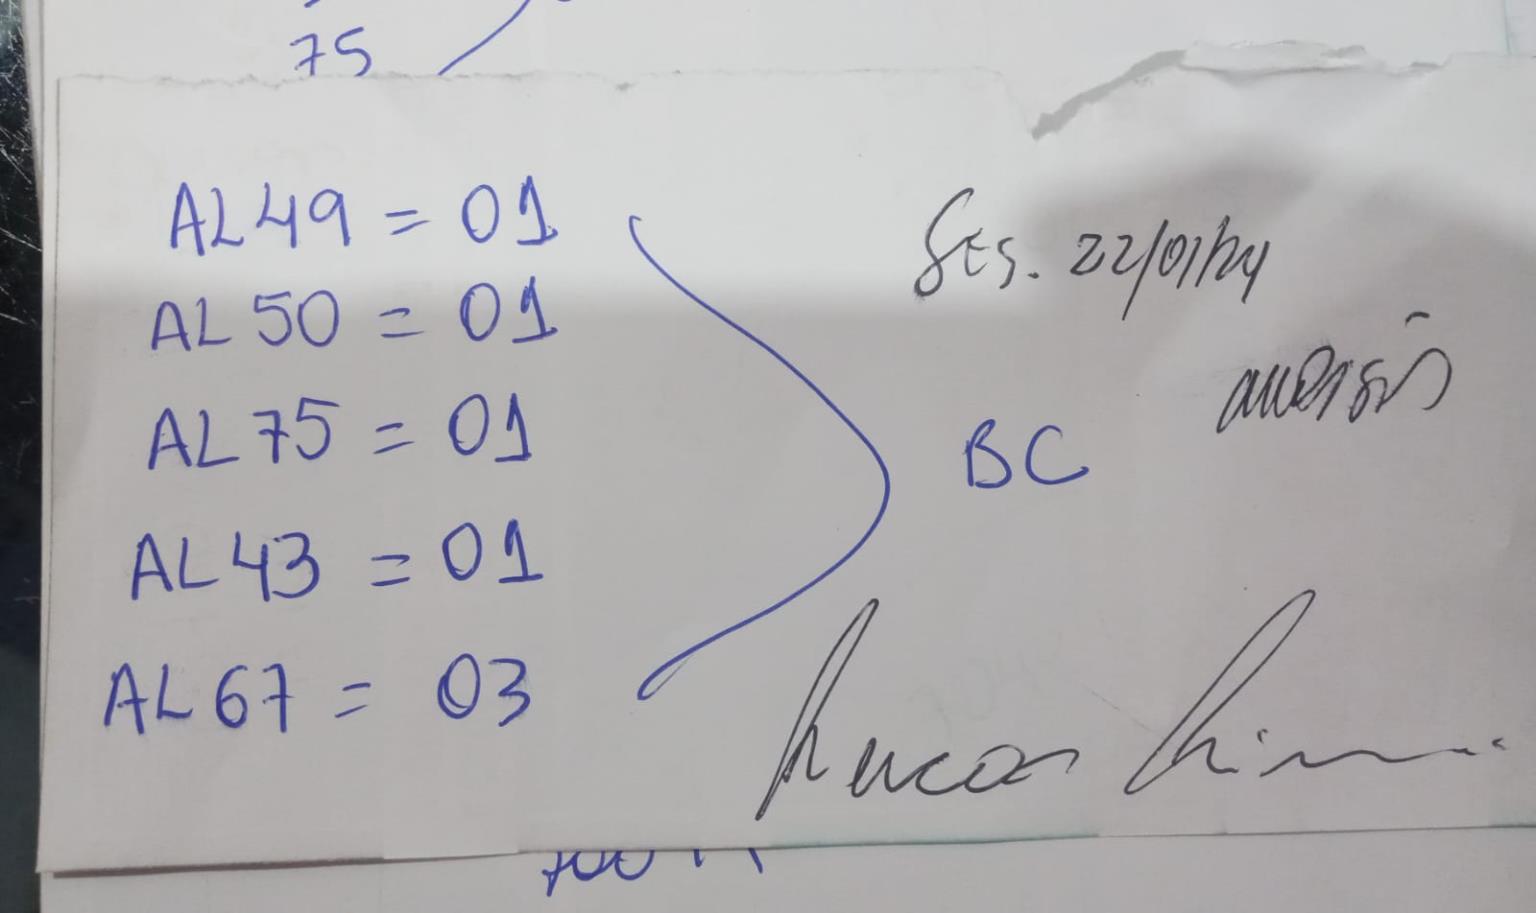 75
AL49 = 01
AL 50 = 01
AL 75 = 01
AL 43 = 01
AL 67 = 03
BC
22/01/24
Lucas